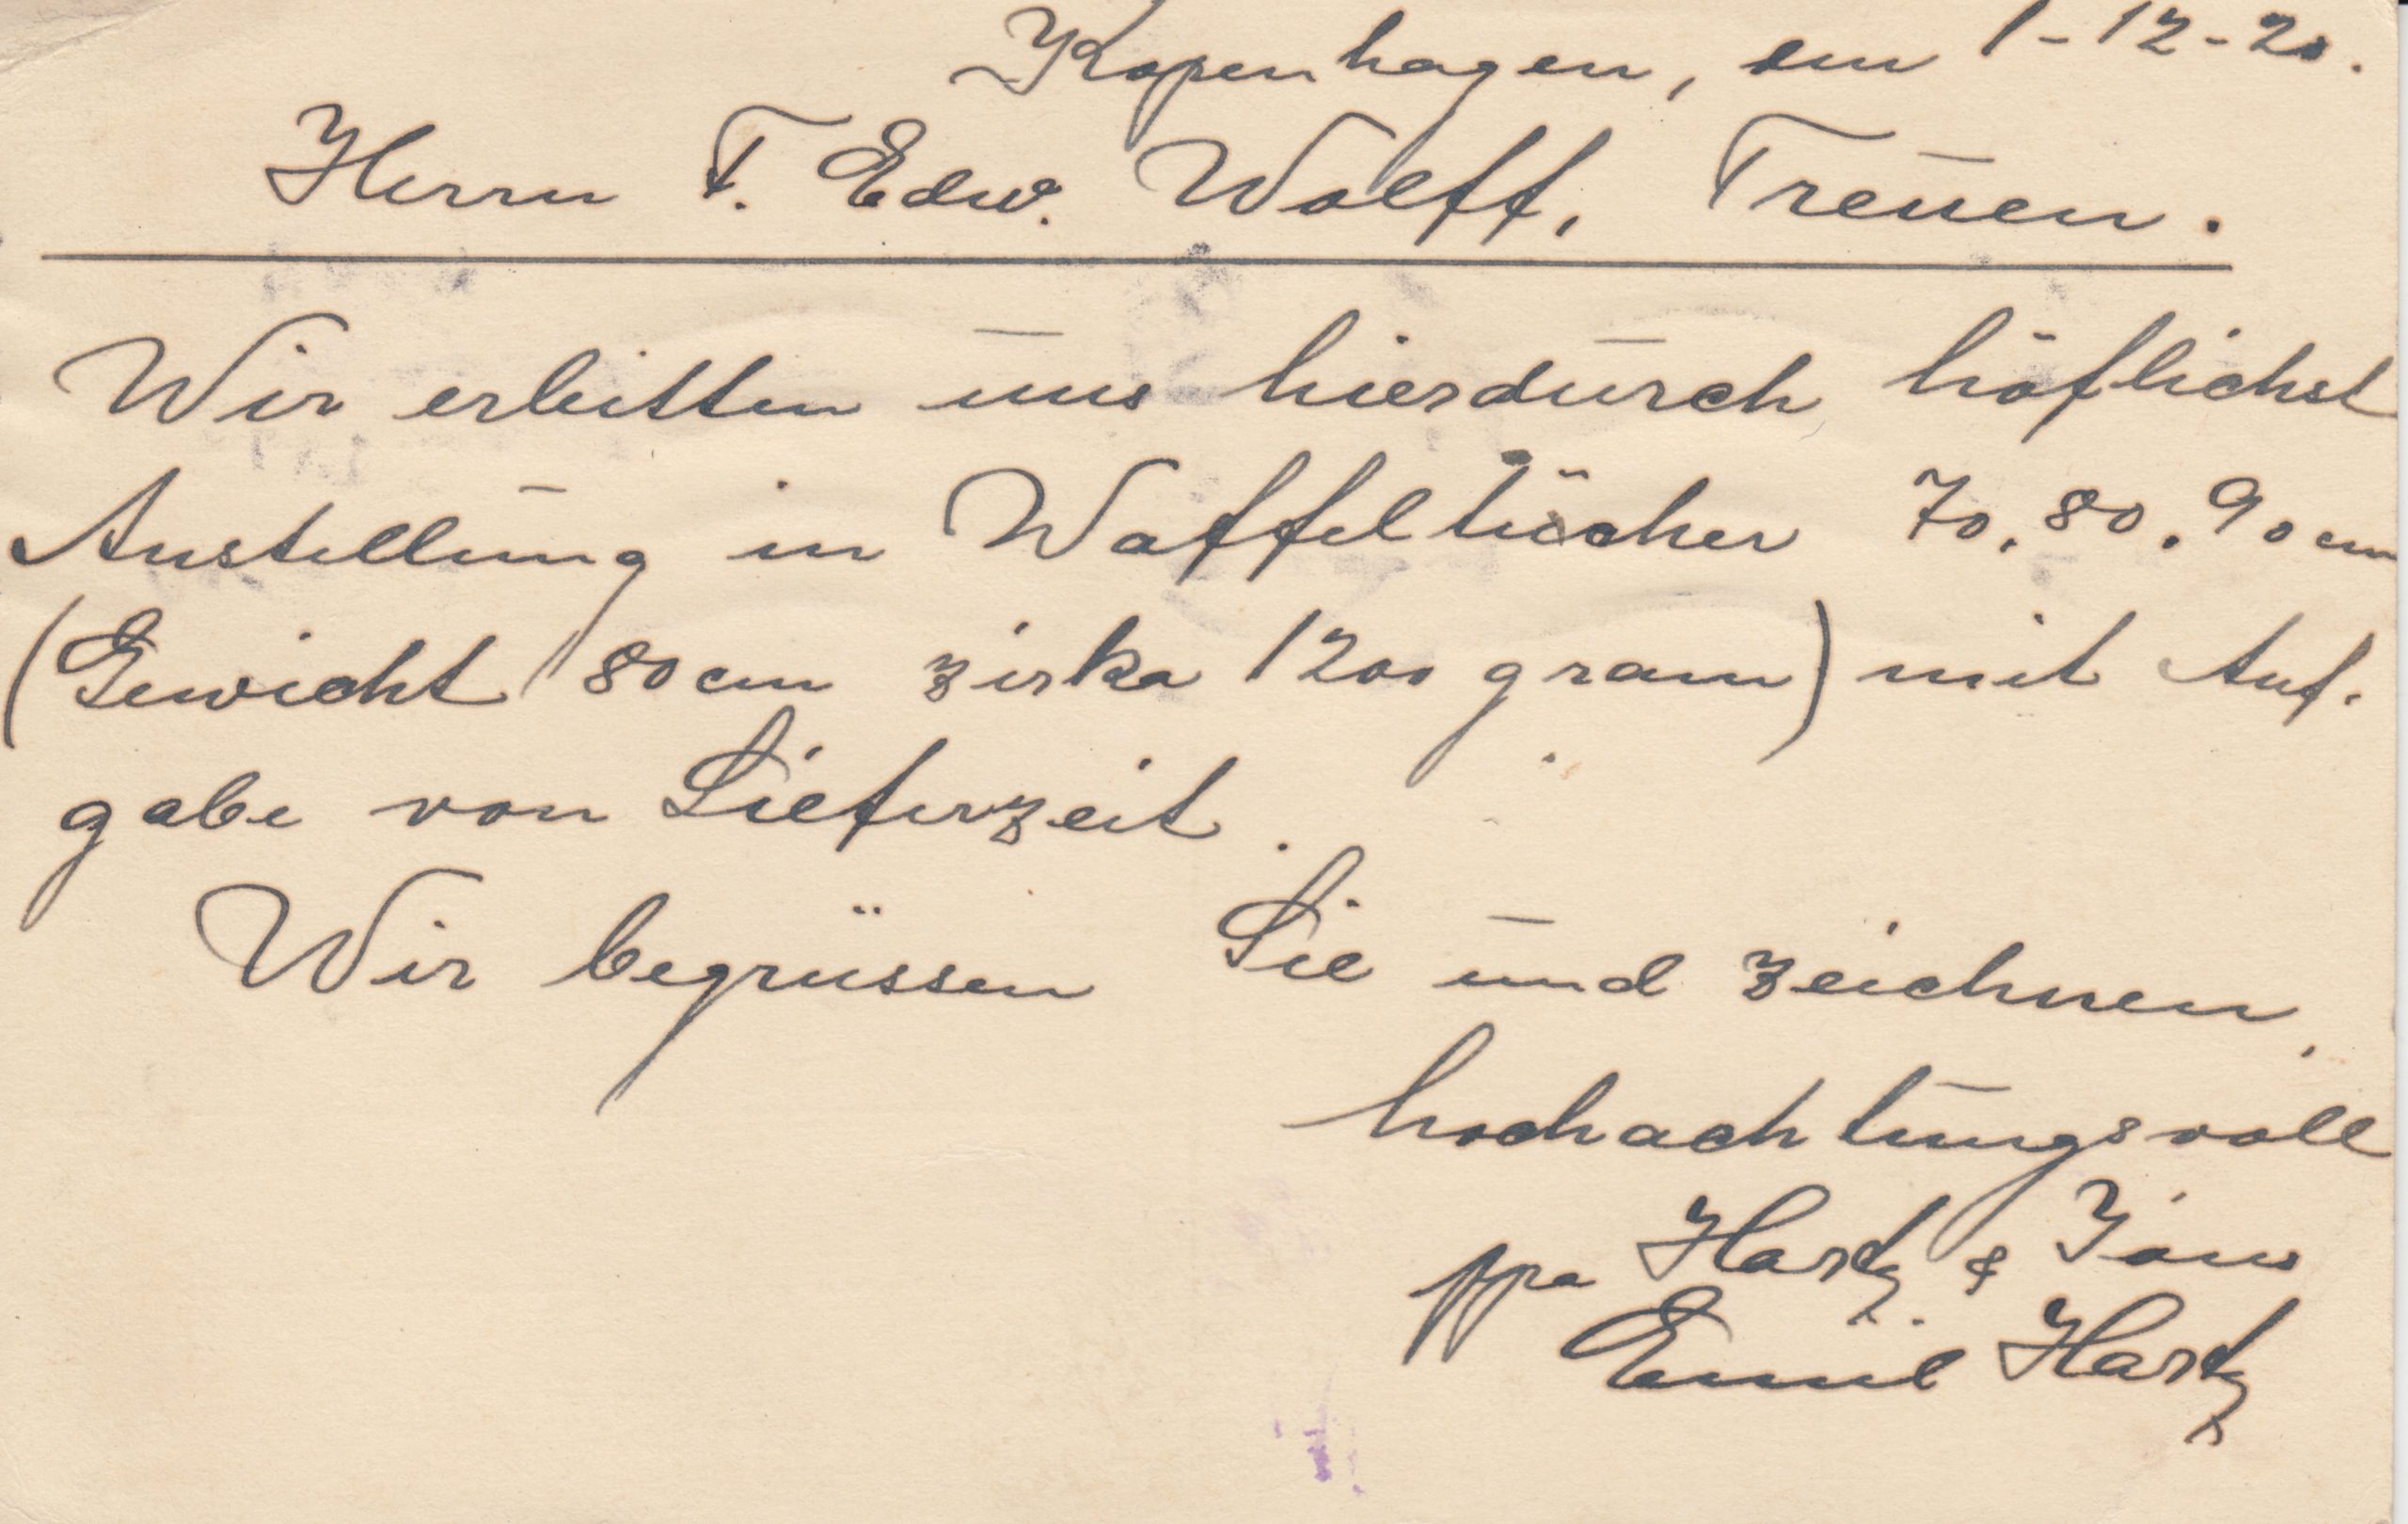 Kopenhagen, den 1-12-20.
Herrn F. Edw. Wolff, Treuen.
Wir erbitten uns hierdurch höflichst
Anstellung in Waffeltücher 70, 80, 90 cm
(Gewicht 80 cm zirka 1200 gram) mit Auf-
gabe von Lieferzeit.
Wir begrüssen Sie und zeichnen,
hochachtungsvoll
ppa Hartz &
Emil Hartz